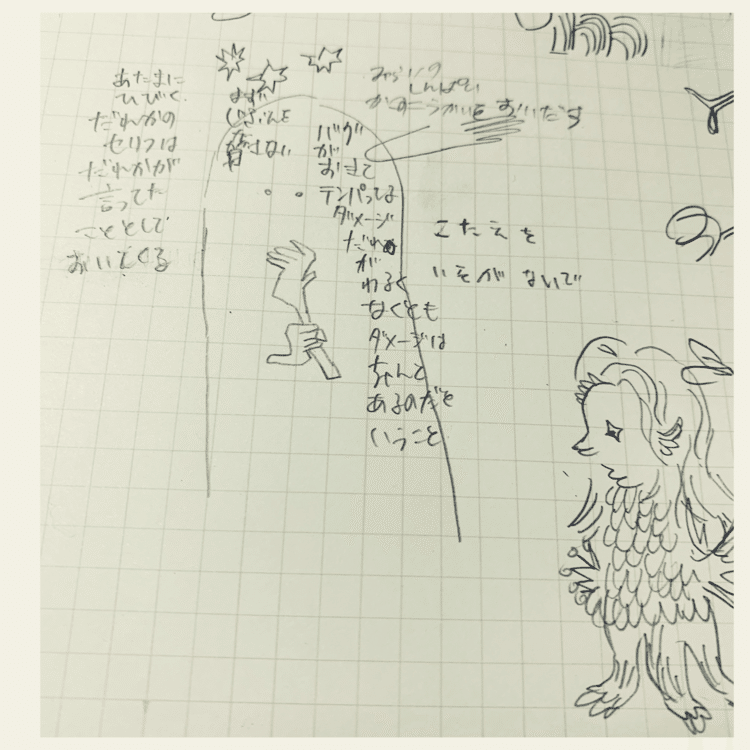 あたまに
ひびく
だれかの
セリフは
だれかが
言ってた
こととして
おいてくる
まず
じぶんを
脅さない
バグ
が
おきて
テンパってる
ダメージ
だれも
が
わるく
なくとも
ダメージは
ちゃんと
あるのだと
いうこと
みらいの
しんぱい
かのうせいを おいだす
こたえを
いそがないで